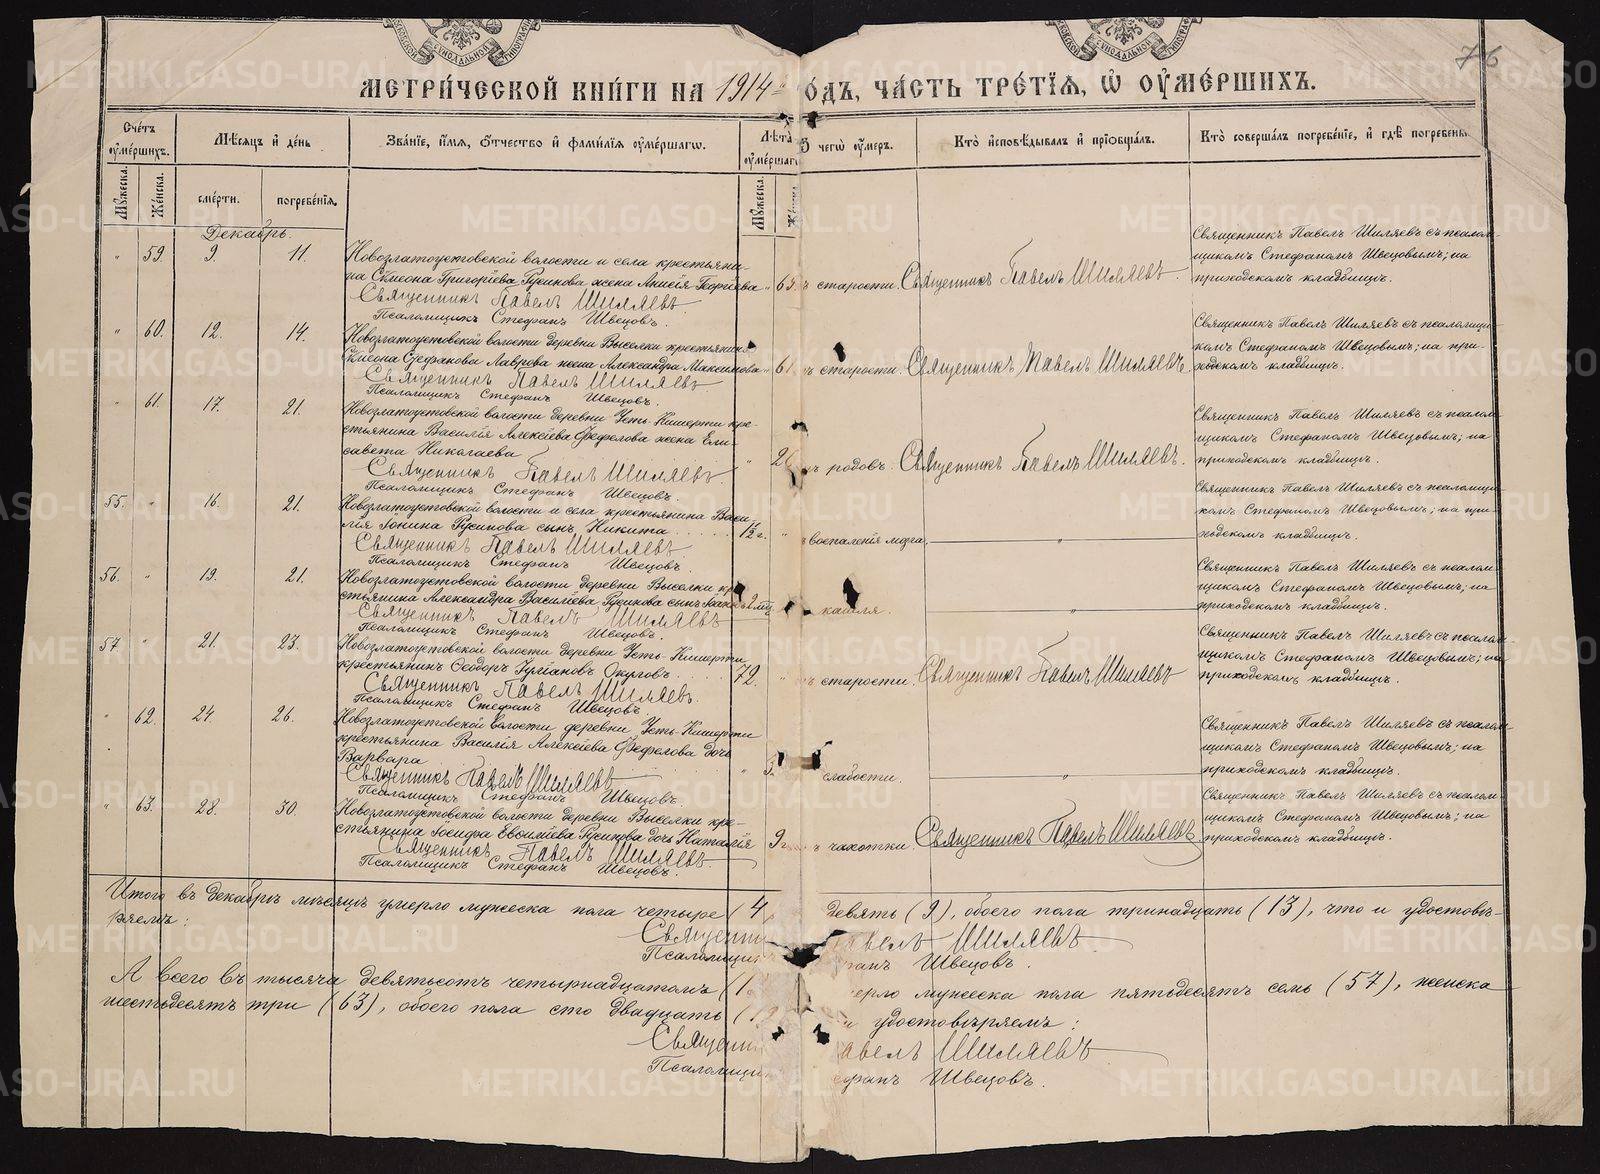 76
МЕТРИ́ЧЕСКОЙ КНИ́ГИ НА 1914 ОДЪ, ЧА́СТЬ ТРЕ́ТІѦ, Ѡ ОУМЕ́РШИХЪ.
Сче́тъ оумершихъ.
Мѣсяцъ и де́нь
Зва́ніе, и́мя, о́тчество и фамилія оумершагѡ.
Лѣта оумершагѡ
ѿ чегѡ оумеръ.
Кто̀ исповѣдывалъ и пріобщалъ.
Кто̀ соверша́лъ погребе́ніе, и гдѣ̀ погребены̀.
Му́жеска.
Же́нска.
сме́рти.
погребе́нія.
Му́жеска.
Декабрь.
" 59. 9. 11.
Новозлатоустовской волости и села крестьяни-
на Сѵмеона Григоріева Русинова жена Анисія Георгіева
Священникъ Павелъ Шиляевъ
Псаломщикъ Стефанъ Швецовъ.
старости.
Священникъ Павелъ Шиляевъ
Священникъ Павелъ Шиляевъ съ псалом-
щикомъ Стефаномъ Швецовымъ; на
приходскомъ кладбищѣ.
" 60. 12. 14.
Новозлатоустовской волости деревни Выселки крестьянина
Сѵмеона Стефанова Лаврова жена Александра Максимова
Священникъ Павелъ Шиляевъ
Псаломщикъ Стефанъ Швецовъ.
старости.
Священникъ Павелъ Шиляевъ.
Священникъ Павелъ Шиляевъ съ псаломщи-
комъ Стефаномъ Швецовымъ; на при-
ходскомъ кладбищѣ.
" 61. 17. 21.
Новозлатоустовской волости деревни Усть-Кишерти кре-
стьянина Василія Алексѣева Фефелова жена Ели-
савета Николаева
Священникъ Павелъ Шиляевъ
Псаломщикъ Стефанъ Швецовъ.
родовъ.
Священникъ Павелъ Шиляевъ.
Священникъ Павелъ Шиляевъ съ псалом-
щикомъ Стефаномъ Швецовымъ; на
приходскомъ кладбищѣ.
55. " 16. 21.
Новозлатоустовской волости и села крестьянина Васи-
лія Іонина Русинова сынъ Никита
Священникъ Павелъ Шиляевъ
Псаломщикъ Стефанъ Швецовъ.
воспаленія мозга.
"
Священникъ Павелъ Шиляевъ съ псаломщи-
комъ Стефаномъ Швецовымъ; на при-
ходскомъ кладбищѣ.
56. " 19. 21.
Новозлатоустовской волости деревни Выселки кре-
стьянина Александра Василіева Русинова сынъ
Священникъ Павелъ Шиляевъ
Псаломщикъ Стефанъ Швецовъ.
кашля.
"
Священникъ Павелъ Шиляевъ съ псалом-
щикомъ Стефаномъ Швецовымъ; на
приходскомъ кладбищѣ.
57. " 21. 23.
Новозлатоустовской волости деревни Усть-Кишерти
крестьянинъ Ѳеодоръ Округовъ.
72.
Священникъ Павелъ Шиляевъ.
Псаломщикъ Стефанъ Швецовъ.
старости.
Священникъ Павелъ Шиляевъ
Священникъ Павелъ Шиляевъ съ псалом-
щикомъ Стефаномъ Швецовымъ; на
приходскомъ кладбищѣ.
" 62. 24. 26.
Новозлатоустовской волости деревни Усть-Кишерти
крестьянина Василія Алексѣева Фефелова дочь
Варвара
Священникъ Павелъ Шиляевъ
Псаломщикъ Стефанъ Швецовъ.
слабости.
"
Священникъ Павелъ Шиляевъ съ псалом-
щикомъ Стефаномъ Швецовымъ; на
приходскомъ кладбищѣ.
" 63. 28. 30.
Новозлатоустовской волости деревни Выселки кре-
стьянина Іосифа Евсиліева Русинова дочь Наталія
Священникъ Павелъ Шиляевъ
Псаломщикъ Стефанъ Швецовъ.
чахотки.
Священникъ Павелъ Шиляевъ
Священникъ Павелъ Шиляевъ съ псалом-
щикомъ Стефаномъ Швецовымъ; на
приходскомъ кладбищѣ.
Итого въ Декабрѣ мѣсяцѣ умерло мужеска пола четыре (4 девять (9), обоего пола тринадцать (13), что и удостовѣ-
ряемъ:
Священни авелъ Шиляевъ
Псаломщик анъ Швецовъ.
А всего въ тысяча девятьсотъ четырнадцатомъ (1 ерло мужеска пола пятьдесятъ семь (57), женска
шестьдесятъ три (63), обоего пола сто двадцать (12 и удостовѣряемъ:
Священни авелъ Шиляевъ
Псаломщик ефанъ Швецовъ.
METRIKI.GASO-URAL.RU